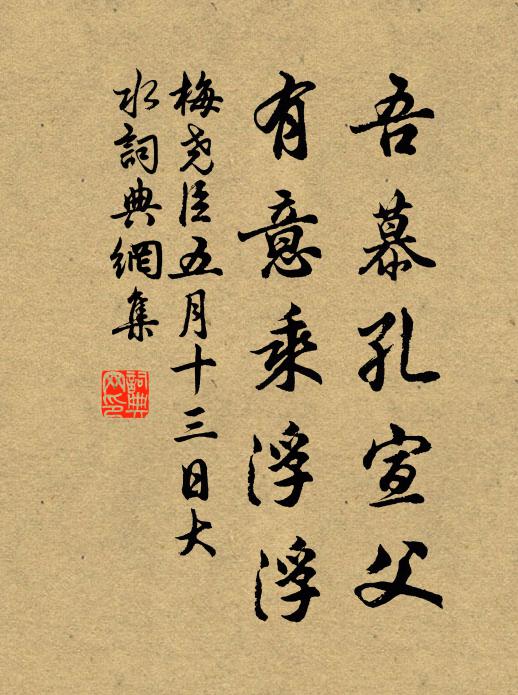 吾慕孔宣父
有意乘浮浮
梅堯臣五月十三日大
水詞典網集
詞典
网印